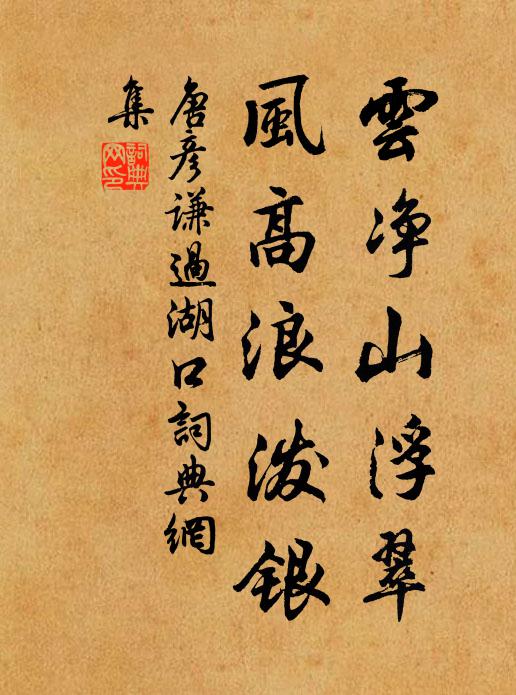 雲净山浮翠
風高浪泼銀
唐彦谦過湖口詞典網
集
詞典
网印